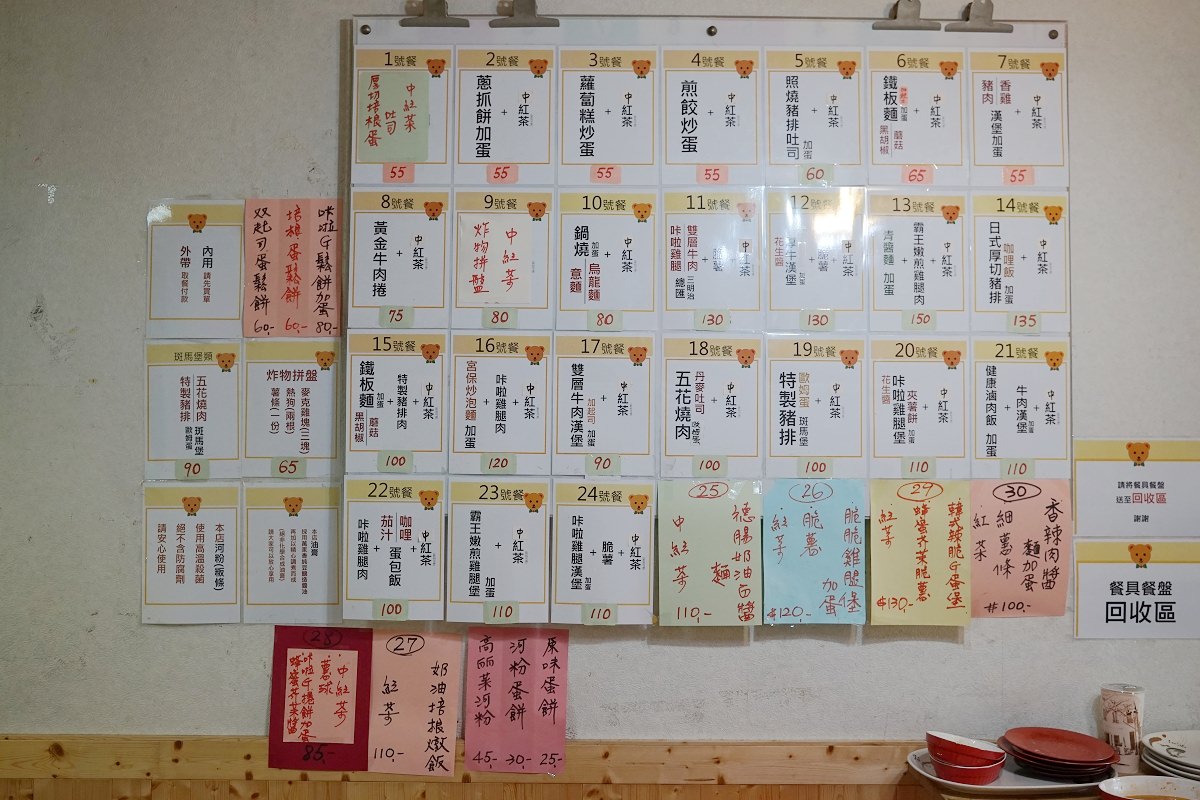 1號餐
厚切培根蛋
吐司
中紅茶
55
2號餐
蔥抓餅加蛋
+
中紅茶
55
3號餐
蘿蔔糕炒蛋
+
中紅茶
55
4號餐
煎餃炒蛋
+
中紅茶
55
5號餐
照燒豬排吐司 加蛋
+
中紅茶
60
6號餐
鐵板麵 加蛋
蘑菇
黑胡椒
+
中紅茶
65
7號餐
香雞
豬肉
漢堡加蛋
+
中紅茶
55
8號餐
黃金牛肉捲
+
中紅茶
75
9號餐
炸物拼盤
中紅茶
80
10號餐
鍋燒
加蛋
烏龍麵
意麵
+
中紅茶
80
11號餐
雙層牛肉
咔啦雞腿
三明治
總匯
+
脆薯
+
中紅茶
130
12號餐
花生醬
牛漢堡
加蛋
+
脆薯
+
中紅茶
130
13號餐
霸王嫩煎雞腿肉
+
青醬麵 加蛋
+
中紅茶
150
14號餐
日式厚切豬排
+
咖哩飯 加蛋
+
中紅茶
135
15號餐
鐵板麵 加蛋
蘑菇
黑胡椒
+
特製豬排
+
中紅茶
100
16號餐
宮保炒泡麵 加蛋
+
咔啦雞腿肉
+
中紅茶
120
17號餐
雙層牛肉漢堡
加起司 加蛋
+
中紅茶
90
18號餐
丹麥吐司
五花燒肉
歐姆蛋
+
中紅茶
100
19號餐
歐姆蛋
特製豬排
斑馬堡
+
中紅茶
100
20號餐
花生醬
咔啦雞腿堡
夾薯餅
加蛋
+
中紅茶
110
21號餐
健康滷肉飯 加蛋
+
牛肉漢堡 加蛋
+
中紅茶
110
22號餐
咖哩
茄汁
蛋包飯
+
咔啦雞腿肉
+
中紅茶
100
23號餐
霸王嫩煎雞腿堡 加蛋
+
中紅茶
110
24號餐
咔啦雞腿漢堡 加蛋
+
脆薯
+
中紅茶
110
25
德腸奶油白醬
麵
中紅茶
110,-
26
脆脆雞腿堡
加蛋
脆薯
紅茶
$120,-
29
韓式辣脆G蛋堡
蜂蜜芥茉脆薯
紅茶
$130,-
30
香辣肉醬
麵加蛋
細薯條
紅茶
#100,-
28
中紅茶
薯球
咔啦G捲餅加蛋
蜂蜜芥茉醬
85,-
27
奶油培根燉飯
紅茶
110,-
原味蛋餅
25,-
河粉蛋餅
30,-
高麗菜河粉
45,-
內用 請先買單
外帶 取餐付款
咔啦G鬆餅加蛋
80,-
培根蛋鬆餅
60,-
双起司蛋鬆餅
60,-
斑馬堡類
五花燒肉
特製豬排
斑馬堡
歐姆蛋
90
炸物拼盤
麥克雞塊(三塊)
熱狗(兩根)
薯條(一份)
65
本店河粉(粄條)
使用高溫殺菌
絕不含防腐劑
請安心使用
本店油膏
請將餐具餐盤
送至回收區
謝謝
餐具餐盤
回收區